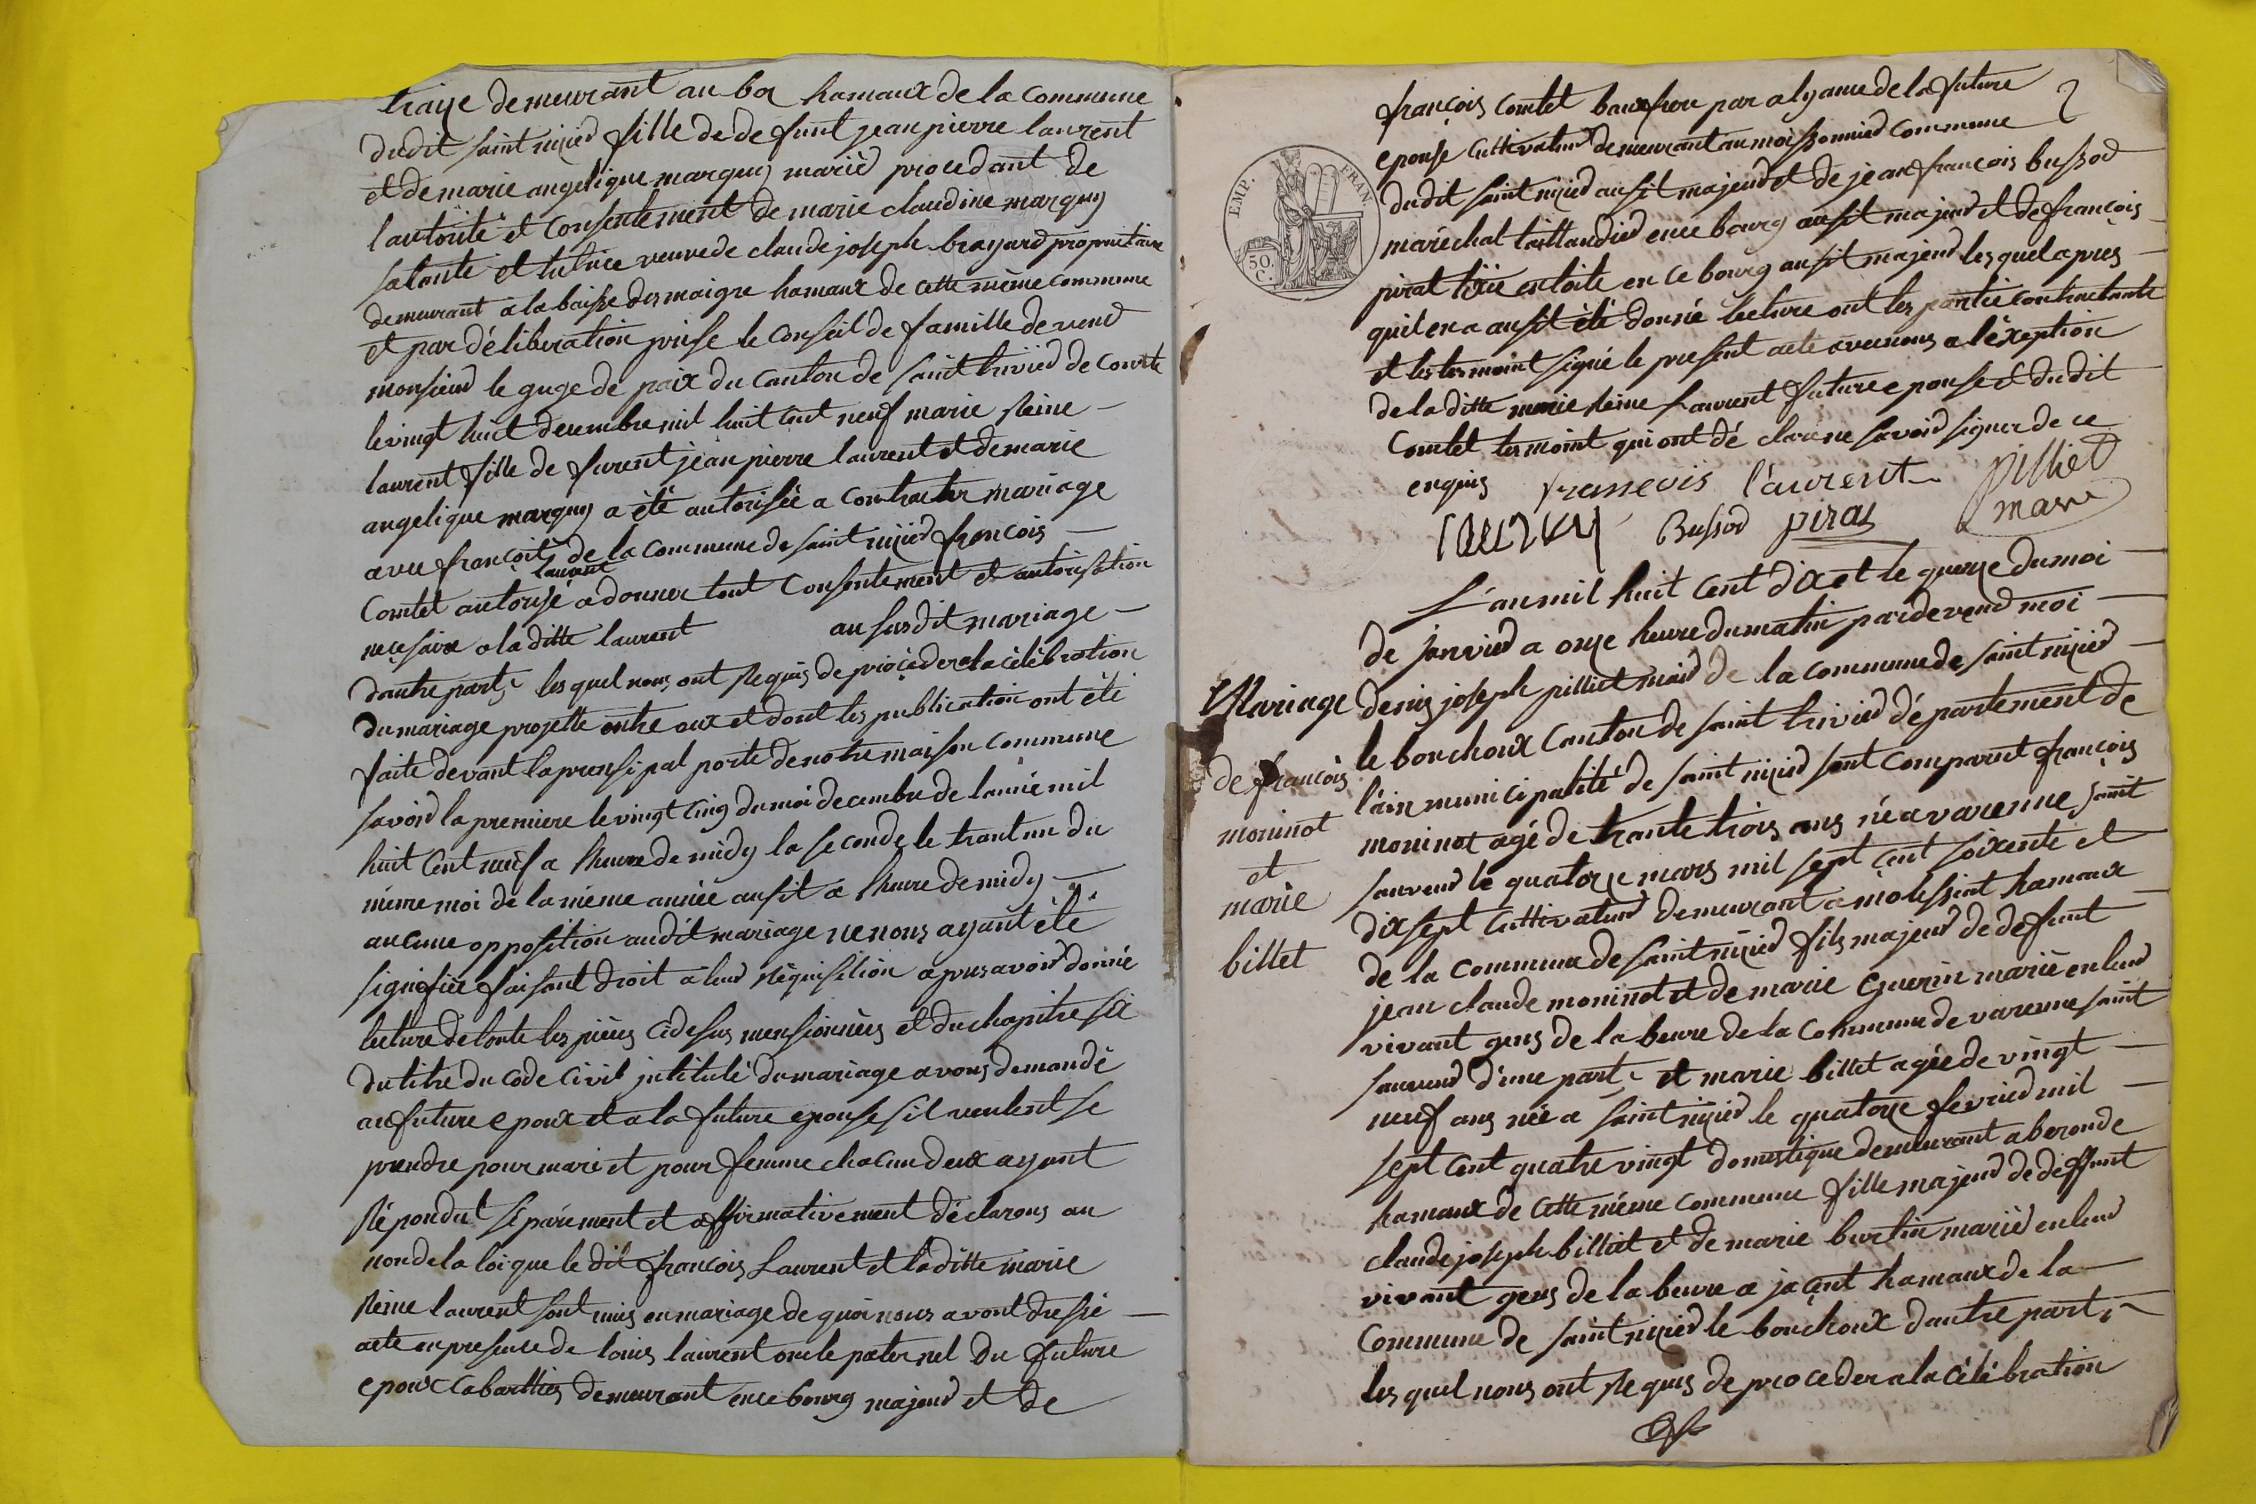 traize demeurant au boz hamaux de la commune
dudit saint nizier fille de defunt jean pierre laurent
et de marie angelique marguy marièr procedant de
l'autorité et consentement de marie claudine marguy
sa tante et tutrice veuve de claude joseph brayard propriétaire
demeurant a la baisse des maigre hamaux de cette même commune
et par délibération prise le conseil de famille devend
monsieur le guge de paix du canton de saint trivier de courte
le vingt huit decembre mil huit cent neuf marie Reine
laurent fille de furent jean pierre laurent et de marie
angelique marguy a été autorisée a contracter mariage
avec françois laurent de la commune de saint nizier françois
Comtet autorisé a donner tout consentement et autorisation
necesaire a la ditte laurent au susdit mariage
dautre part, les quel nous ont Requis de procéder a la célébration
du mariage projetté entre eux et dont les publication ont été
faite devant la prensipal porte de notre maison commune
savoir la premiere le vingt cinq du moi decembre de lannée mil
huit cent neuf a lheure de midy la seconde le trant un du
même moi de la même année ausit a lheure de midy
aucune opposition audit mariage ne nous ayant été
signifiée faisant droit a leur Réquisition apres avoir donné
lecture de toute les pièces cidesus mensionnées et du chapitre six
du titre du code civil jntitulé du mariage avons demandé
au future epoux et a la future epouse sil veulent se
prendre pour mari et pour femme chacun deux ayant
Répondut séparément et affirmativement déclarons au
non de la loi que le dit françois Laurent et la ditte marie
Reine laurent sont unis en mariage de quoi nous avont dressé
acte en presence de louis laurent oncle paternel du future
epoux Cabarttier demeurant en ce bourg majeur et de
françois comtet baux frere par alyance de la future
epouse cultivateur demeurant au moissonnier commune
dudit saint nizier ausit majeur et de jean francois bussod
maréchal taillandier en ce bourg ausit majeur et de françois
pirat tixie en toite en ce bourg ausit majeur les quel après
quil en a ausit été donné lecture ont les partie contractante
et les temoint signé le present acte avec nous a l'éxeption
de la ditte marie Reine Laurent future epouse et dudit
Comtet temoint qui ont déclaré ne savoir signer de ce
enquis francois laurent pilliet
laurent Bussod piras mare
L'an mil huit cent dix et le quenze du moi
de janvier a onze heure du matin pardevend moi
Mariage denis joseph pilliet mair de la commune de saint nizier
le bouchoux canton de saint trivier département de
de françois l'ain municipalité de saint nizier sont comparut françois
moninot moninot agé de trante trois ans né a varenne saint
et sauveur le quatorze mars mil sept cent soixente et
marie dix sept cultivateur demeurant a molissiat hamaux
billet de la commune de saint nizier fils majeur de defunt
jean claude moninot et de marie Guerin mariée en leur
vivant gens de la beure de la commune de varenne saint
sauveur d'une part, et marie billet agée de vingt
neuf ans née a saint nizier le quatorze fevrier mil
sept cent quatre vingt domestique demeurant a beronde
hamaux de cette même commune fille majeur de deffunt
claude joseph billiet et de marie burtin mariér en leur
vivant gens de la beure a jaçent hamaux de la
Commune de saint nizier le bouchoux dautre part,
les quel nous ont Requis de proceder a la célébration
EMP. FRAN.
50.
C.